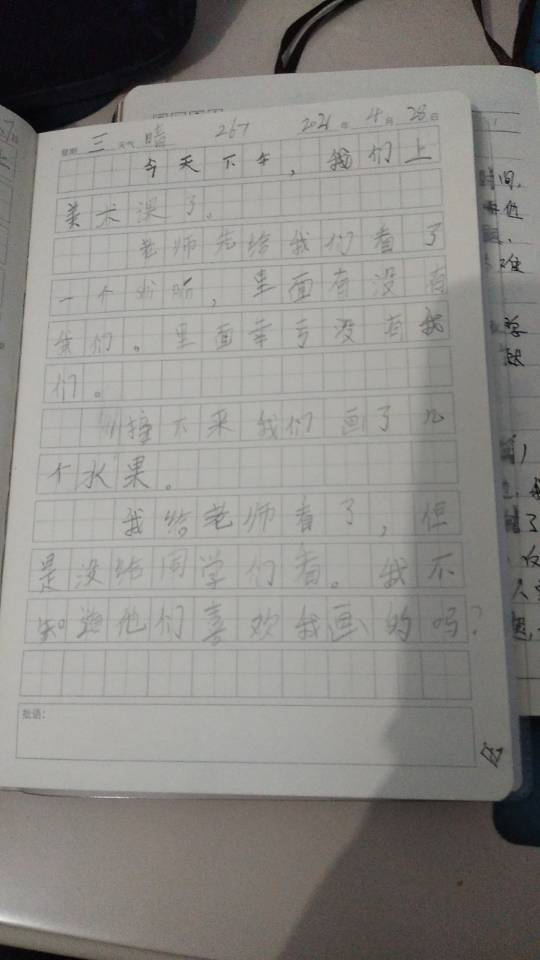 星期 三 天气 晴 267 2021 年 4 月 28 日
今天下午，我们上
美术课了。
老师先给我们看了
一个 ，里面有没有
我们。里面幸亏没有我
们。
接下来我们画了几
个水果。
我给老师看了，但
是没给同学们看。我不
知道他们喜欢我画的吗？
批语：
时间，
学
了